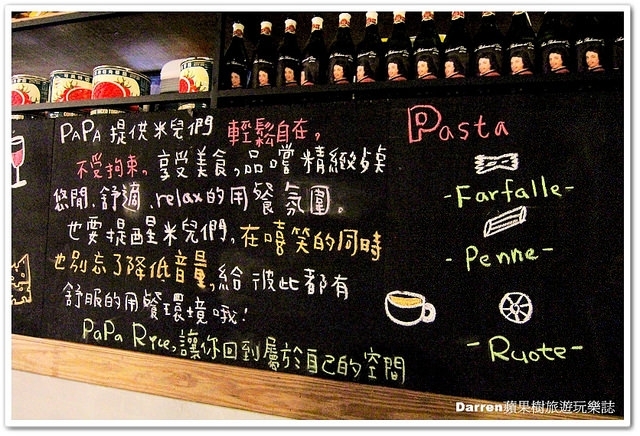 PAPA 提供米兒們 輕鬆自在，
不受拘束，享受美食，品嚐精緻點
悠閒、舒適、relax的用餐氛圍。
也要提醒米兒們，在嘻笑的同時
也別忘了降低音量，給彼此都有
舒服的用餐環境哦！
PaPa Rice，讓你回到屬於自己的空間
Pasta
-Farfalle-
-Penne-
-Ruote-
Darren蘋果樹旅遊玩樂誌